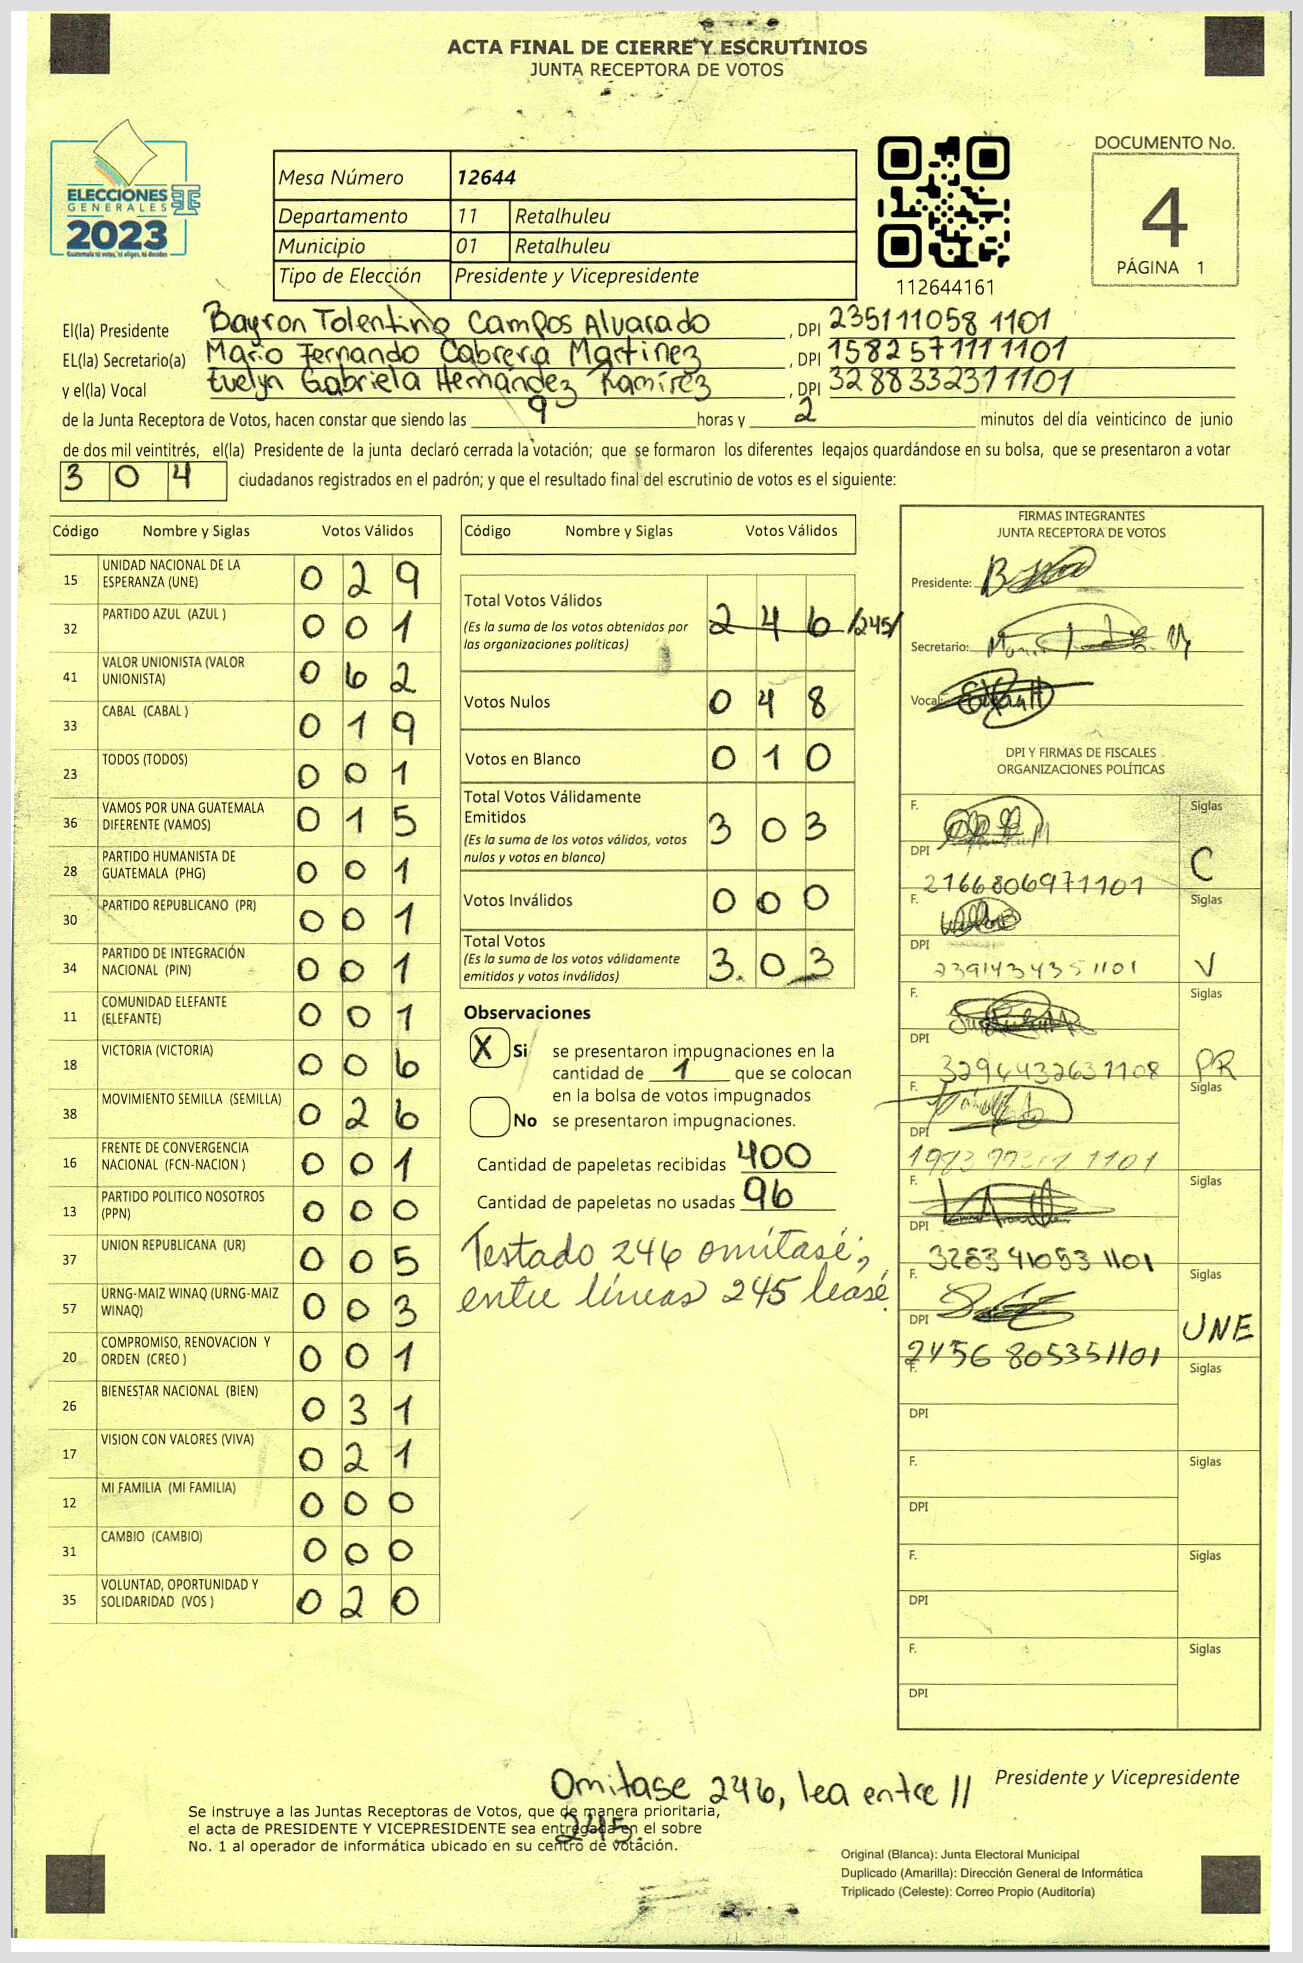 ACTA FINAL DE CIERRE Y ESCRUTINIOS
JUNTA RECEPTORA DE VOTOS
ELECCIONES
GENERALES
2023
Guatemala tú votas, tú eliges, tú decides
Mesa Número 12644
Departamento 11 Retalhuleu
Municipio 01 Retalhuleu
Tipo de Elección Presidente y Vicepresidente
112644161
DOCUMENTO No.
4
PÁGINA 1
El(la) Presidente Bayron Tolentino Campos Alvarado , DPI 235111058 1101
EL(la) Secretario(a) Mario Fernando Cabrera Martinez , DPI 1582571111101
y el(la) Vocal Evelyn Gabriela Hernández Ramírez , DPI 3288332311101
de la Junta Receptora de Votos, hacen constar que siendo las 9 horas y 2 minutos del día veinticinco de junio
de dos mil veintitrés, el(la) Presidente de la junta declaró cerrada la votación; que se formaron los diferentes legajos guardándose en su bolsa, que se presentaron a votar
3 0 4 ciudadanos registrados en el padrón; y que el resultado final del escrutinio de votos es el siguiente:
Código Nombre y Siglas Votos Válidos
15 UNIDAD NACIONAL DE LA
ESPERANZA (UNE) 0 2 9
32 PARTIDO AZUL (AZUL ) 0 0 1
41 VALOR UNIONISTA (VALOR
UNIONISTA) 0 6 2
33 CABAL (CABAL ) 0 1 9
23 TODOS (TODOS) 0 0 1
36 VAMOS POR UNA GUATEMALA
DIFERENTE (VAMOS) 0 1 5
28 PARTIDO HUMANISTA DE
GUATEMALA (PHG) 0 0 1
30 PARTIDO REPUBLICANO (PR) 0 0 1
34 PARTIDO DE INTEGRACIÓN
NACIONAL (PIN) 0 0 1
11 COMUNIDAD ELEFANTE
(ELEFANTE) 0 0 1
18 VICTORIA (VICTORIA) 0 0 6
38 MOVIMIENTO SEMILLA (SEMILLA) 0 2 6
16 FRENTE DE CONVERGENCIA
NACIONAL (FCN-NACION ) 0 0 1
13 PARTIDO POLITICO NOSOTROS
(PPN) 0 0 0
37 UNION REPUBLICANA (UR) 0 0 5
57 URNG-MAIZ WINAQ (URNG-MAIZ
WINAQ) 0 0 3
20 COMPROMISO, RENOVACION Y
ORDEN (CREO ) 0 0 1
26 BIENESTAR NACIONAL (BIEN) 0 3 1
17 VISION CON VALORES (VIVA) 0 2 1
12 MI FAMILIA (MI FAMILIA) 0 0 0
31 CAMBIO (CAMBIO) 0 0 0
35 VOLUNTAD, OPORTUNIDAD Y
SOLIDARIDAD (VOS ) 0 2 0
Código Nombre y Siglas Votos Válidos
Total Votos Válidos 2 4 6 /245/
(Es la suma de los votos obtenidos por
las organizaciones politicas)
Votos Nulos 0 4 8
Votos en Blanco 0 1 0
Total Votos Válidamente
Emitidos 3 0 3
(Es la suma de los votos válidos, votos
nulos y votos en blanco)
Votos Inválidos 0 0 0
Total Votos
(Es la suma de los votos válidamente
emitidos y votos inválidos) 3 0 3
Observaciones
X Si se presentaron impugnaciones en la
cantidad de 1 que se colocan
en la bolsa de votos impugnados
No se presentaron impugnaciones.
Cantidad de papeletas recibidas 400
Cantidad de papeletas no usadas 96
Testado 246 omitasé;
entre líneas 245 leasé
FIRMAS INTEGRANTES
JUNTA RECEPTORA DE VOTOS
Presidente:
Secretario:
Vocal:
DPI Y FIRMAS DE FISCALES
ORGANIZACIONES POLÍTICAS
F. Siglas
DPI C
2166806971101
F. Siglas
DPI
2391434351101 V
F. Siglas
DPI
3294432631108 PR
F. Siglas
DPI
F. Siglas
DPI
3283410531101
F. Siglas
DPI UNE
2456 805351101
F. Siglas
DPI
F. Siglas
DPI
F. Siglas
DPI
F. Siglas
DPI
Presidente y Vicepresidente
Omitase 246, lea entre //
245.
Se instruye a las Juntas Receptoras de Votos, que de manera prioritaria,
el acta de PRESIDENTE Y VICEPRESIDENTE sea entregada en el sobre
No. 1 al operador de informática ubicado en su centro de votación.
Original (Blanca): Junta Electoral Municipal
Duplicado (Amarilla): Dirección General de Informática
Triplicado (Celeste): Correo Propio (Auditoría)